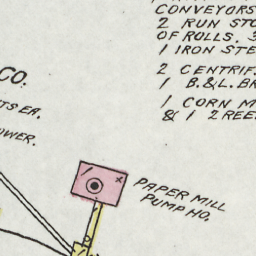 CONVEYORS
2 RUN STO
OF ROLLS. 3
1 IRON STE
2 CENTRIF.
1 B.&L. BR
1 CORN M
& 1 2 REE
CO.
TS EA.
OWER.
PAPER MILL
PUMP HO.